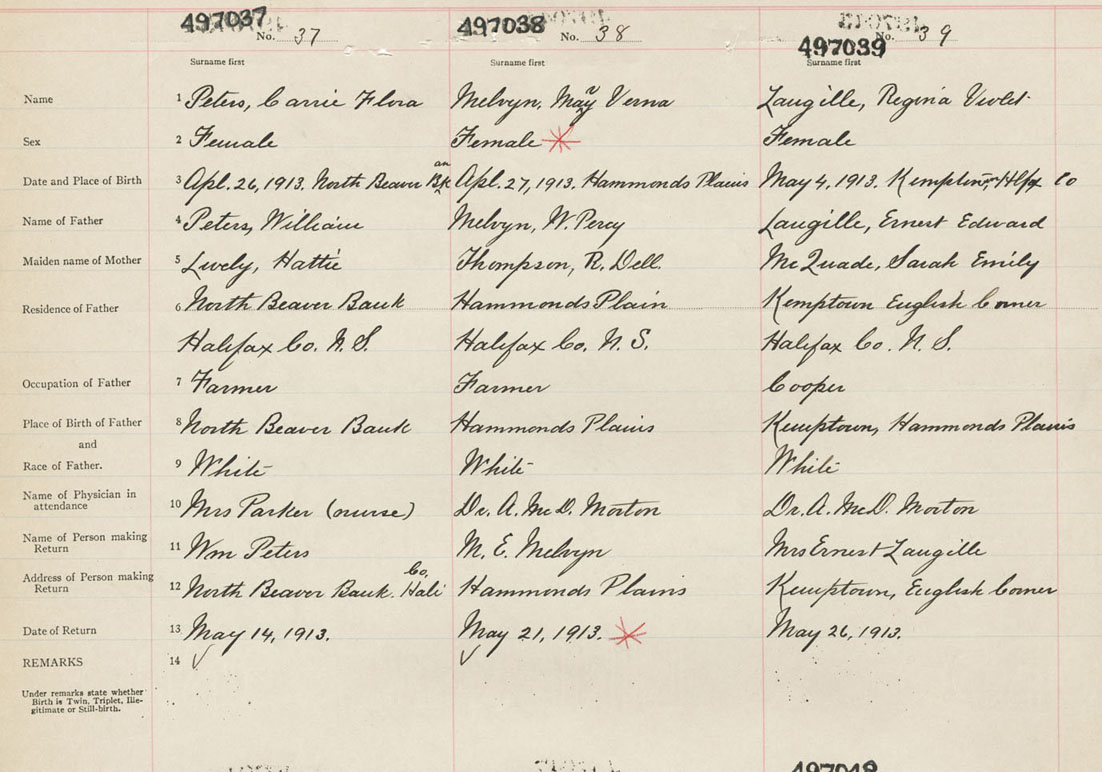 497037 497038 497039
No. 37 No. 38 No. 39
Surname first Surname first Surname first
Name 1 Peters, Carrie Flora Melvyn, May Verna Langille, Regina Violet
Sex 2 Female Female Female
Date and Place of Birth 3 Apl. 26, 1913. North Beaver Bk Apl. 27, 1913. Hammonds Plains May 4, 1913. Hlfx Co
Name of Father 4 Peters, William Melvyn, W. Percy Langille, Ernest Edward
Maiden name of Mother 5 Lively, Hattie Thompson, R. Dell. McQuade, Sarah Emily
Residence of Father 6 North Beaver Bank Hammonds Plain Kemptown English Corner
Halifax Co. N.S. Halifax Co. N.S. Halifax Co. N.S.
Occupation of Father 7 Farmer Farmer Cooper
Place of Birth of Father 8 North Beaver Bank Hammonds Plains Kemptown, Hammonds Plains
and
Race of Father. 9 White White White
Name of Physician in
attendance 10 Mrs Parker (nurse) Dr. A. McD. Morton Dr. A. McD. Morton
Name of Person making
Return 11 Wm Peters M. E. Melvyn Mrs Ernest Langille
Address of Person making
Return 12 North Beaver Bank. Hali Co. Hammonds Plains Kemptown, English Corner
Date of Return 13 May 14, 1913. May 21, 1913. May 26, 1913.
REMARKS 14
Under remarks state whether
Birth is Twin, Triplet, Ille-
gitimate or Still-birth.